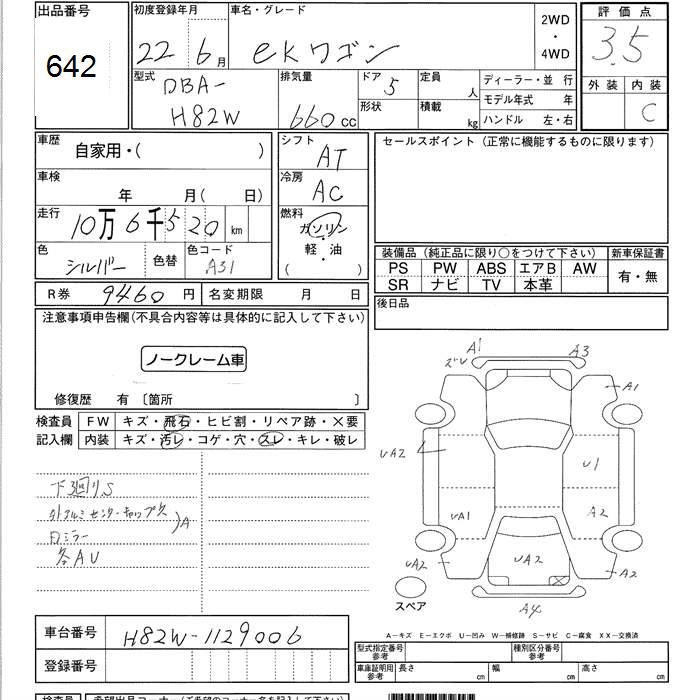 出品番号
642
初度登録年月
22年6月
車名・グレード
eKワゴン
2WD
・
4WD
評価点
3.5
外装 内装
C
型式
DBA-
H82W
排気量
660cc
ドア
5
形状
定員 人
積載 kg
ディーラー・並行
モデル年式 年
ハンドル 左・右
車歴
自家用・( )
車検
年 月( 日)
走行
10万6千520km
色
シルバー
色替
色コード
A31
シフト
AT
冷房
AC
燃料
ガソリン
・
軽・油
( )
セールスポイント(正常に機能するものに限ります)
装備品(純正品に限り○をつけて下さい)
新車保証書
PS PW ABS エアB AW
SR ナビ TV 本革
有・無
R券 9460円
名変期限 月 日
後日品
注意事項申告欄(不具合内容等は具体的に記入して下さい)
ノークレーム車
修復歴 有〔箇所 〕
検査員
記入欄
FW キズ・飛石・ヒビ割・リペア跡・×要
内装 キズ・汚レ・コゲ・穴・スレ・キレ・破レ
下廻りS
外アルミセンターキャップ欠
)A
ミラー
各AU
A1
ズレ
A3
A1
UA2
U1
UA1
A2
UA2
UA2
A2
A4
スペア
A−キズ E−エクボ U−凹み W−補修跡 S−サビ C−腐食 XX−交換済
車台番号
H82W-1129006
登録番号
型式指定番号
参考
種別区分番号
参考
車庫証明用
参考
長さ cm
幅 cm
高さ cm
検査員
希望出品コーナー(ご希望のコーナー名を記入下さい)